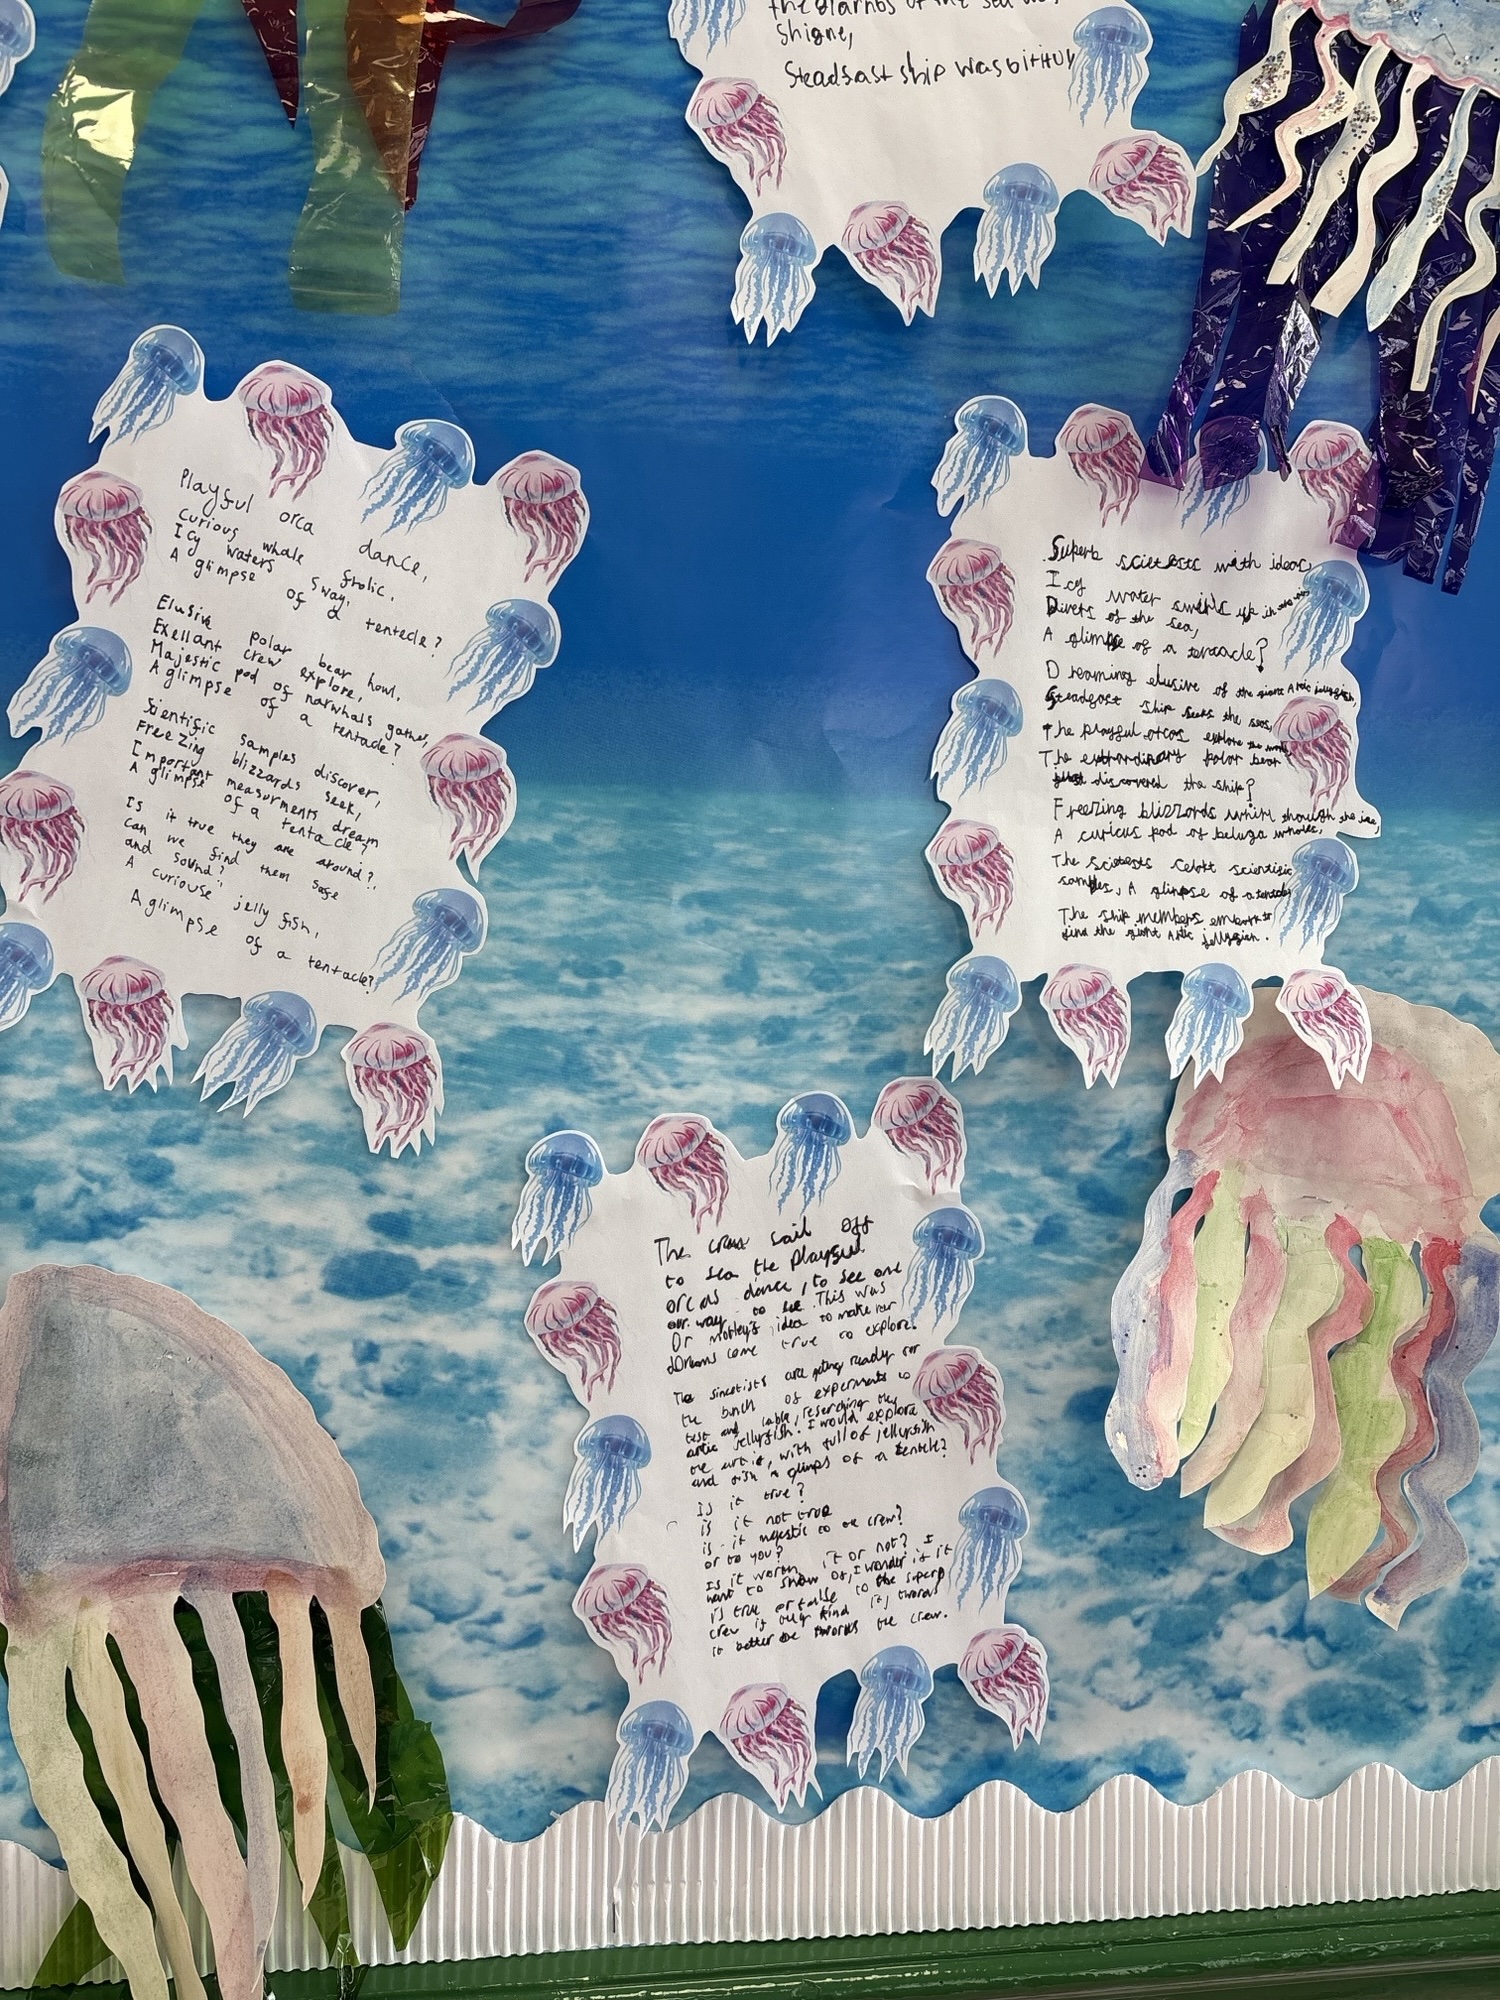 the
of the sea
Shigne,
Steadfast ship was bitituy
Playful orca dance,
Curious whale frolic.
Icy waters sway,
A glimpse of a tentecle?
Elusive polar bear howl,
Exellant crew explore,
Majestic pod of narwhals gather,
A glimpse of a tentacle?
Scientific samples discover,
Freezing blizzards seek,
Important measurments dream
A glimpse of a tentacle?
Is it true they are around?,
can we find them safe
and sound?
A curiouse jelly fish,
A glimpse of a tentacle?
Superb with ideas,
Icy water up in the
Divers of the sea,
A glimpse of a tentacle?
Dreaming elusive of the giant Artic jellyfish,
Steadfast ship seeks the seas,
The playful orcas explore the
The extrordinary polar bear
discovered the ship?
Freezing blizzords whirl though the ice,
A curicus pod of beluga wholes,
The scietests scientific
samples, A glimpse of a tentacle
The ship members embark to
find the giant Artic jellyfish.
The crew sail off
to sea the Playful
orcas dance, to see one
our way to see. This was
Dr motley's idea to make our
dDreams come true to explore.
The sincetists are geting ready for
the bunch of experments to
test and lable, reserching the
artic jellyfish. I would explore
the artic, with full of jellyfish
and fish a glimps of a tentcle?
Is it true?
is it not true
is it majestic to the crew?
or to you?
Is it worth it or not? I
want to show of, I wonder if it
is true or false to the superp
crew if our kind it, twords
it better the twords the crew.